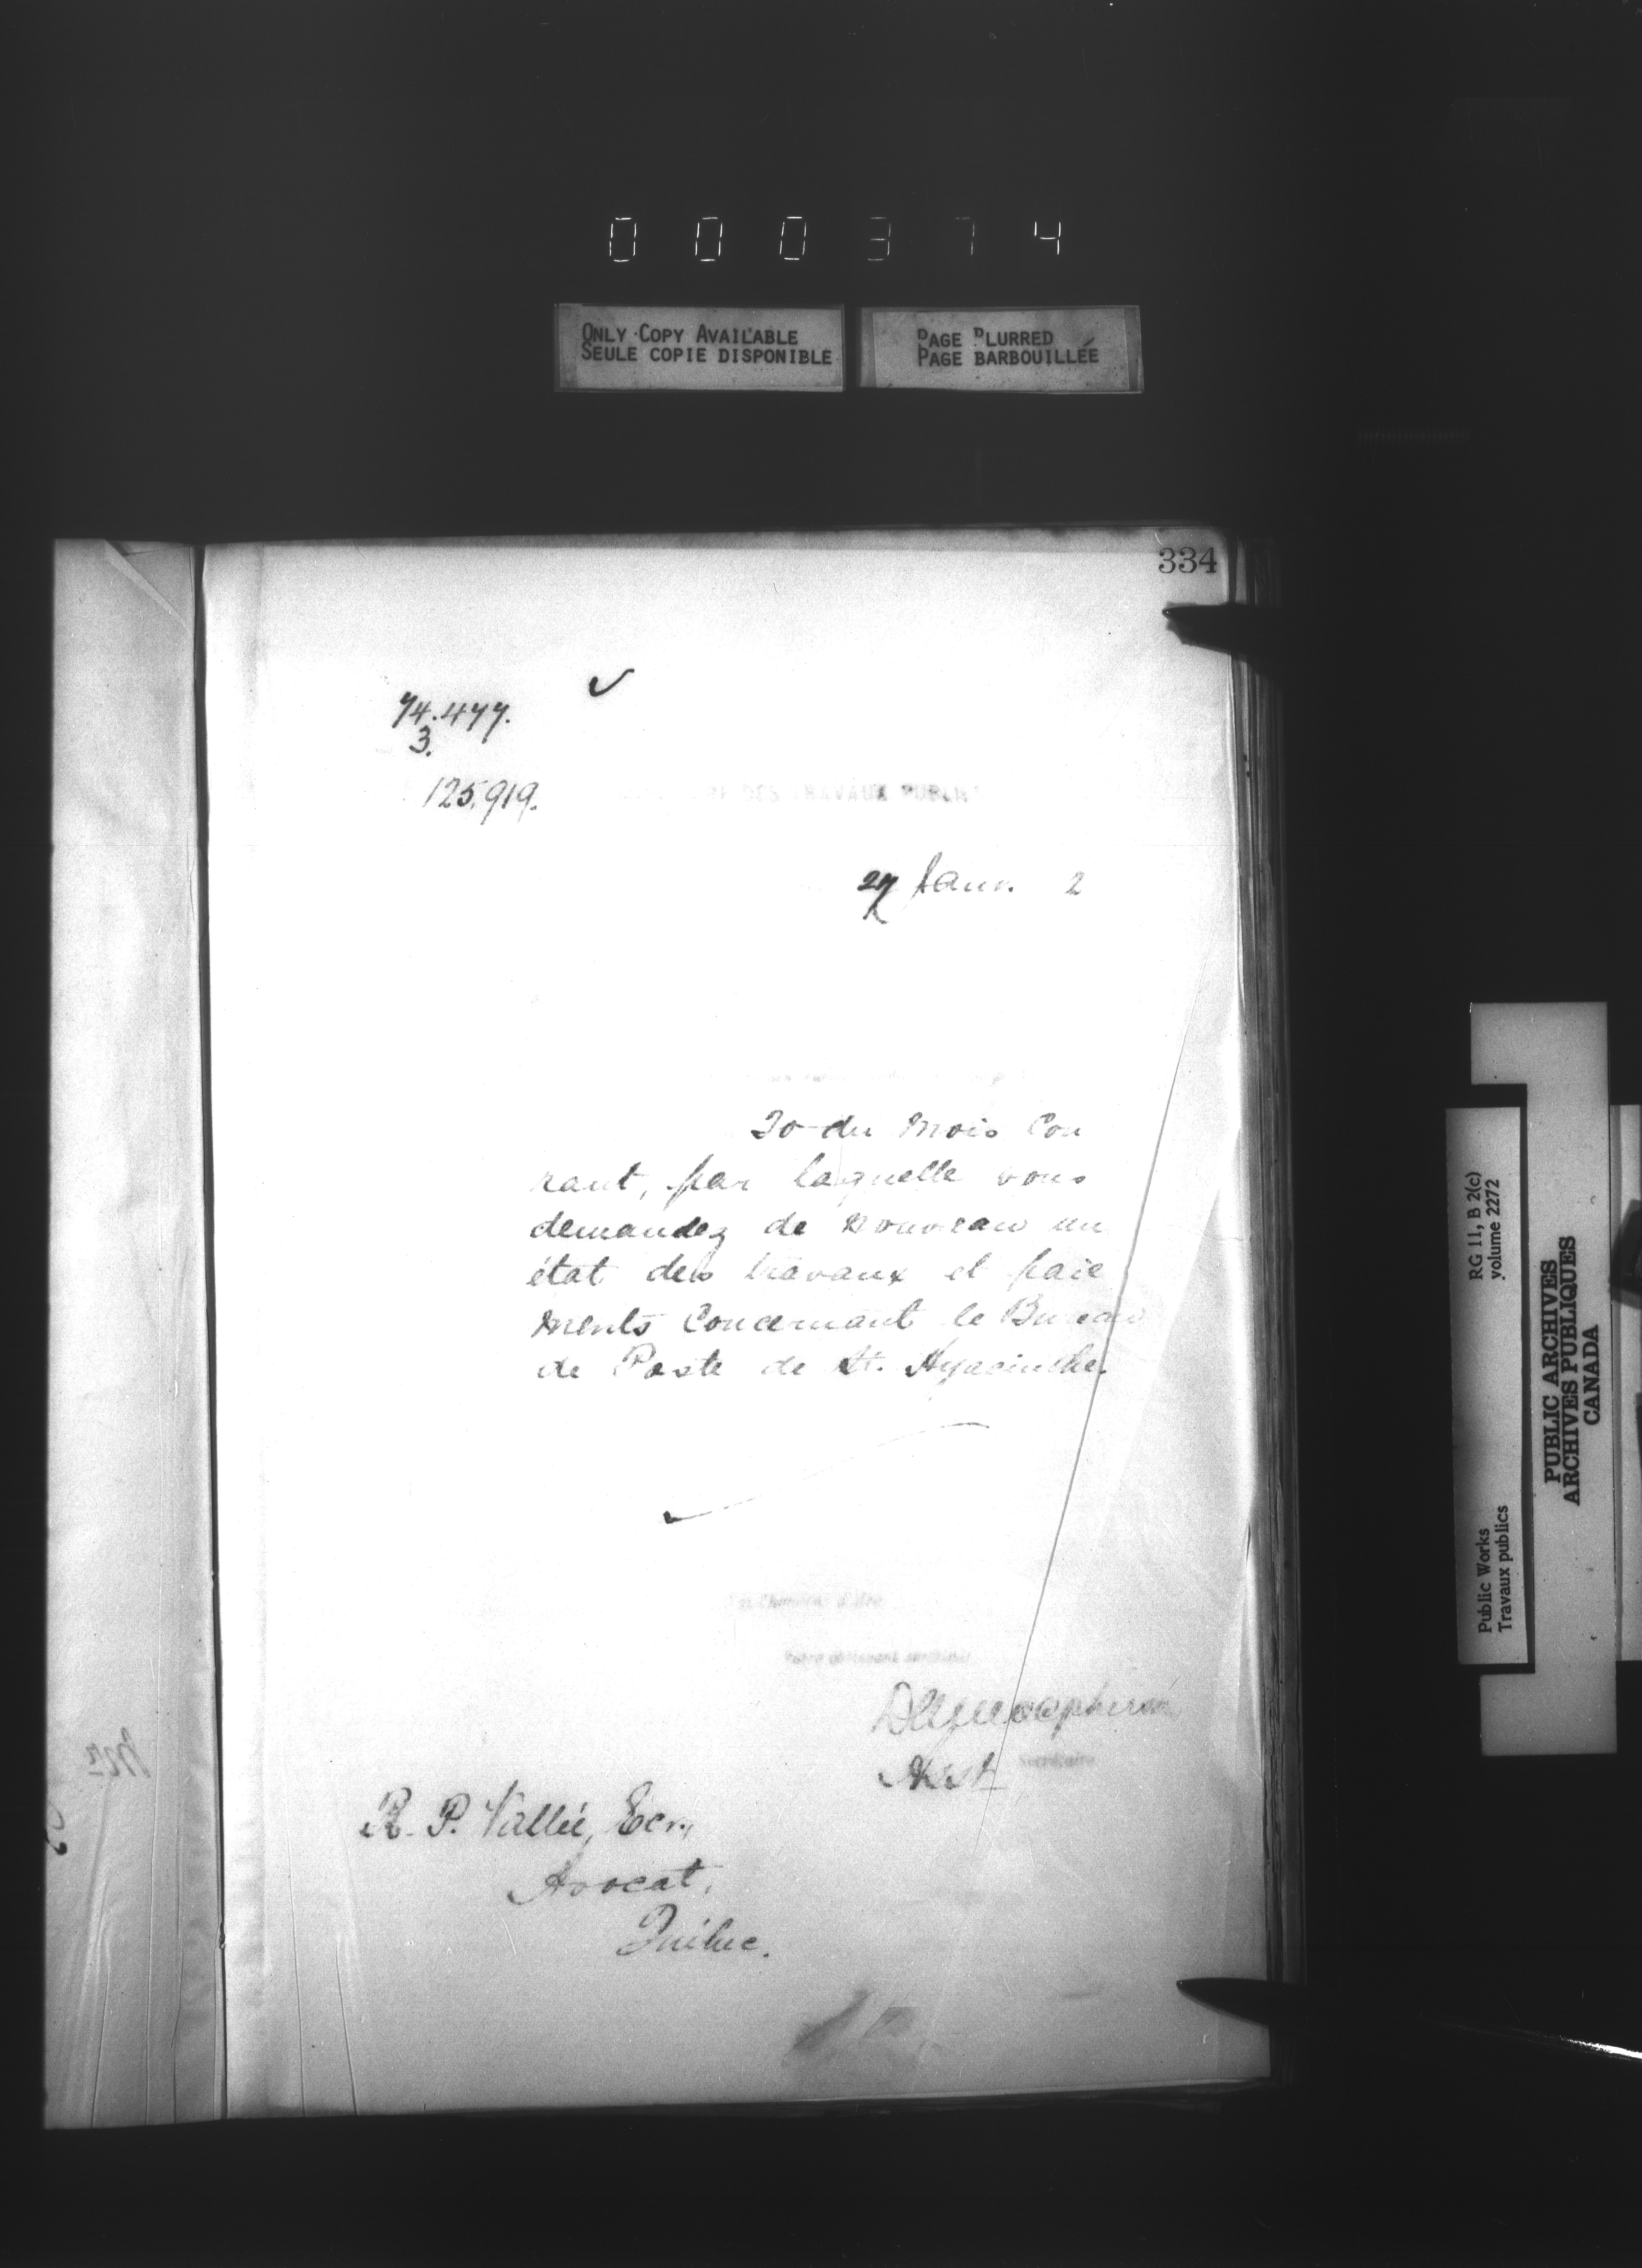 000374
ONLY COPY AVAILABLE
SEULE COPIE DISPONIBLE
PAGE BLURRED
PAGE BARBOUILLÉE
334
74.477.
3.
125,919.
DES TRAVAUX PUBLICS
27 Janv. 2
20 du mois Cou
rant, par laquelle vous
demandez de nouveau un
état des travaux et paie
ments Concernant le Bureau
de Poste de St. Hyacinthe.
Votre obéissant serviteur
Asst Secrétaire
R. P. Vallée, Ecr.,
Avocat,
Québec.
RG 11, B 2(c)
volume 2272
Public Works
Travaux publics
PUBLIC ARCHIVES
ARCHIVES PUBLIQUES
CANADA